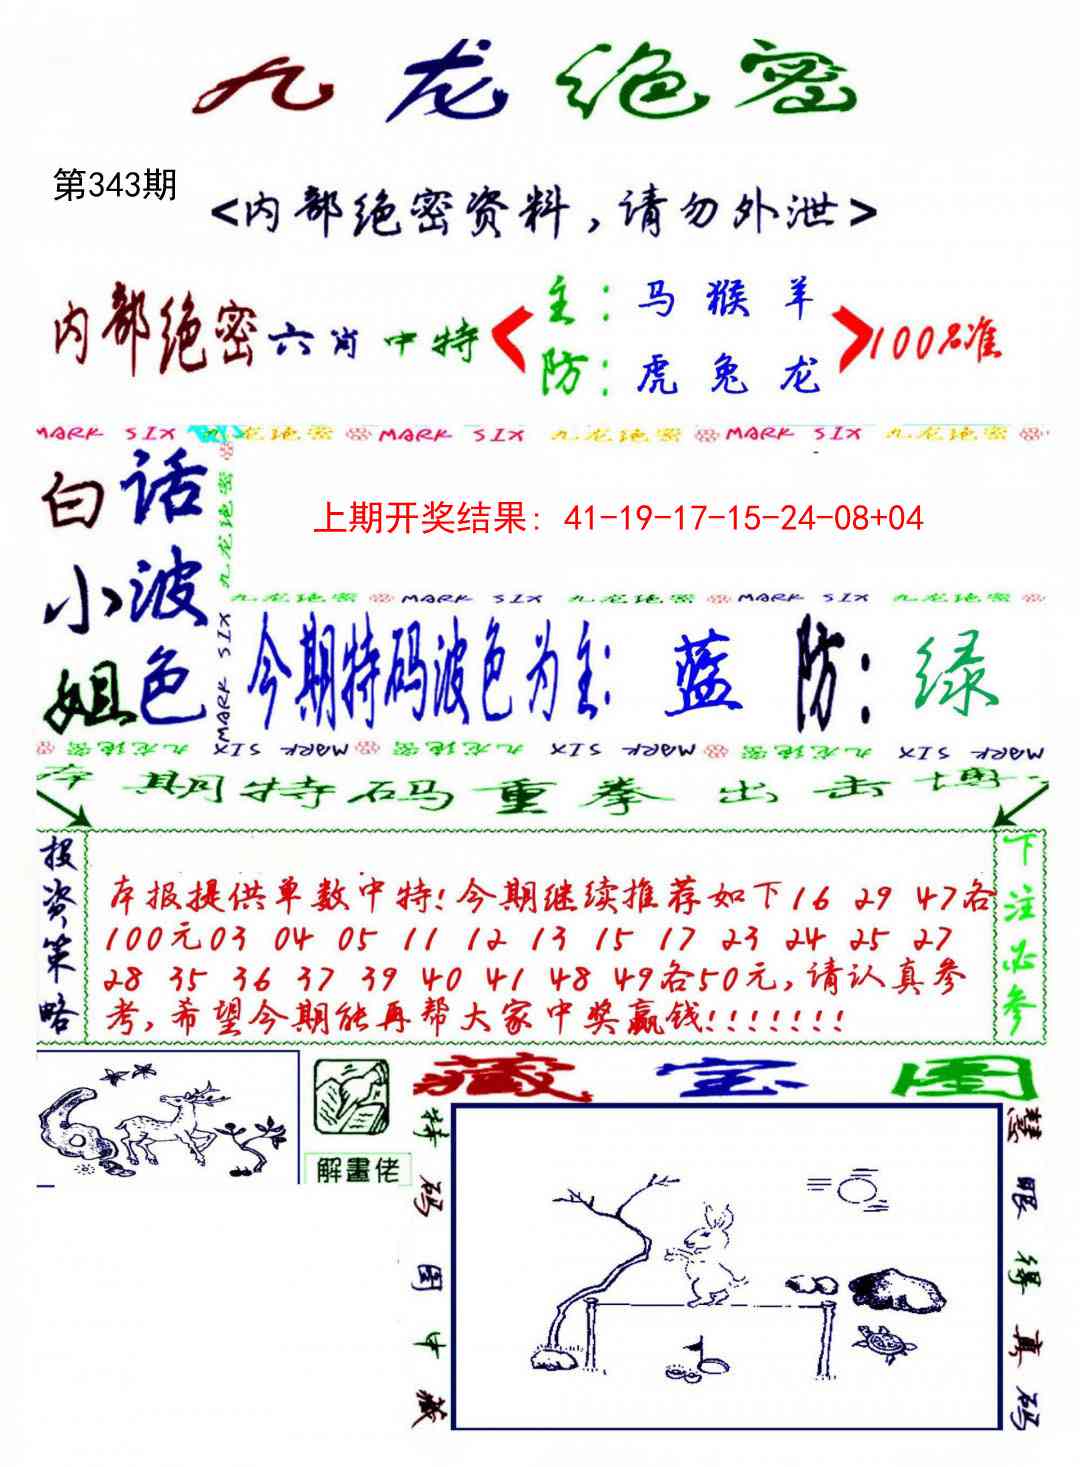 九龙绝密
第343期
<内部绝密资料,请勿外泄>
内部绝密六肖中特
主:马猴羊
防:虎兔龙
100%准
MARK SIX 九龙绝密 MARK SIX 九龙绝密 MARK SIX 九龙绝密
白小姐
话波色
九龙绝密
MARK SIX
上期开奖结果: 41-19-17-15-24-08+04
九龙绝密 MARK SIX 九龙绝密 MARK SIX 九龙绝密
今期特码波色为主: 蓝 防: 绿
九龙绝密 MARK SIX 九龙绝密 MARK SIX 九龙绝密 MARK SIX
本期特码重拳出击博一
投资策略
本报提供单数中特!今期继续推荐如下16 29 47各
100元03 04 05 11 12 13 15 17 23 24 25 27
28 35 36 37 39 40 41 48 49各50元,请认真参
考,希望今期能再帮大家中奖赢钱!!!!!!!
下注必参
藏宝图
解畫佬
特码图中藏
慧眼得真码